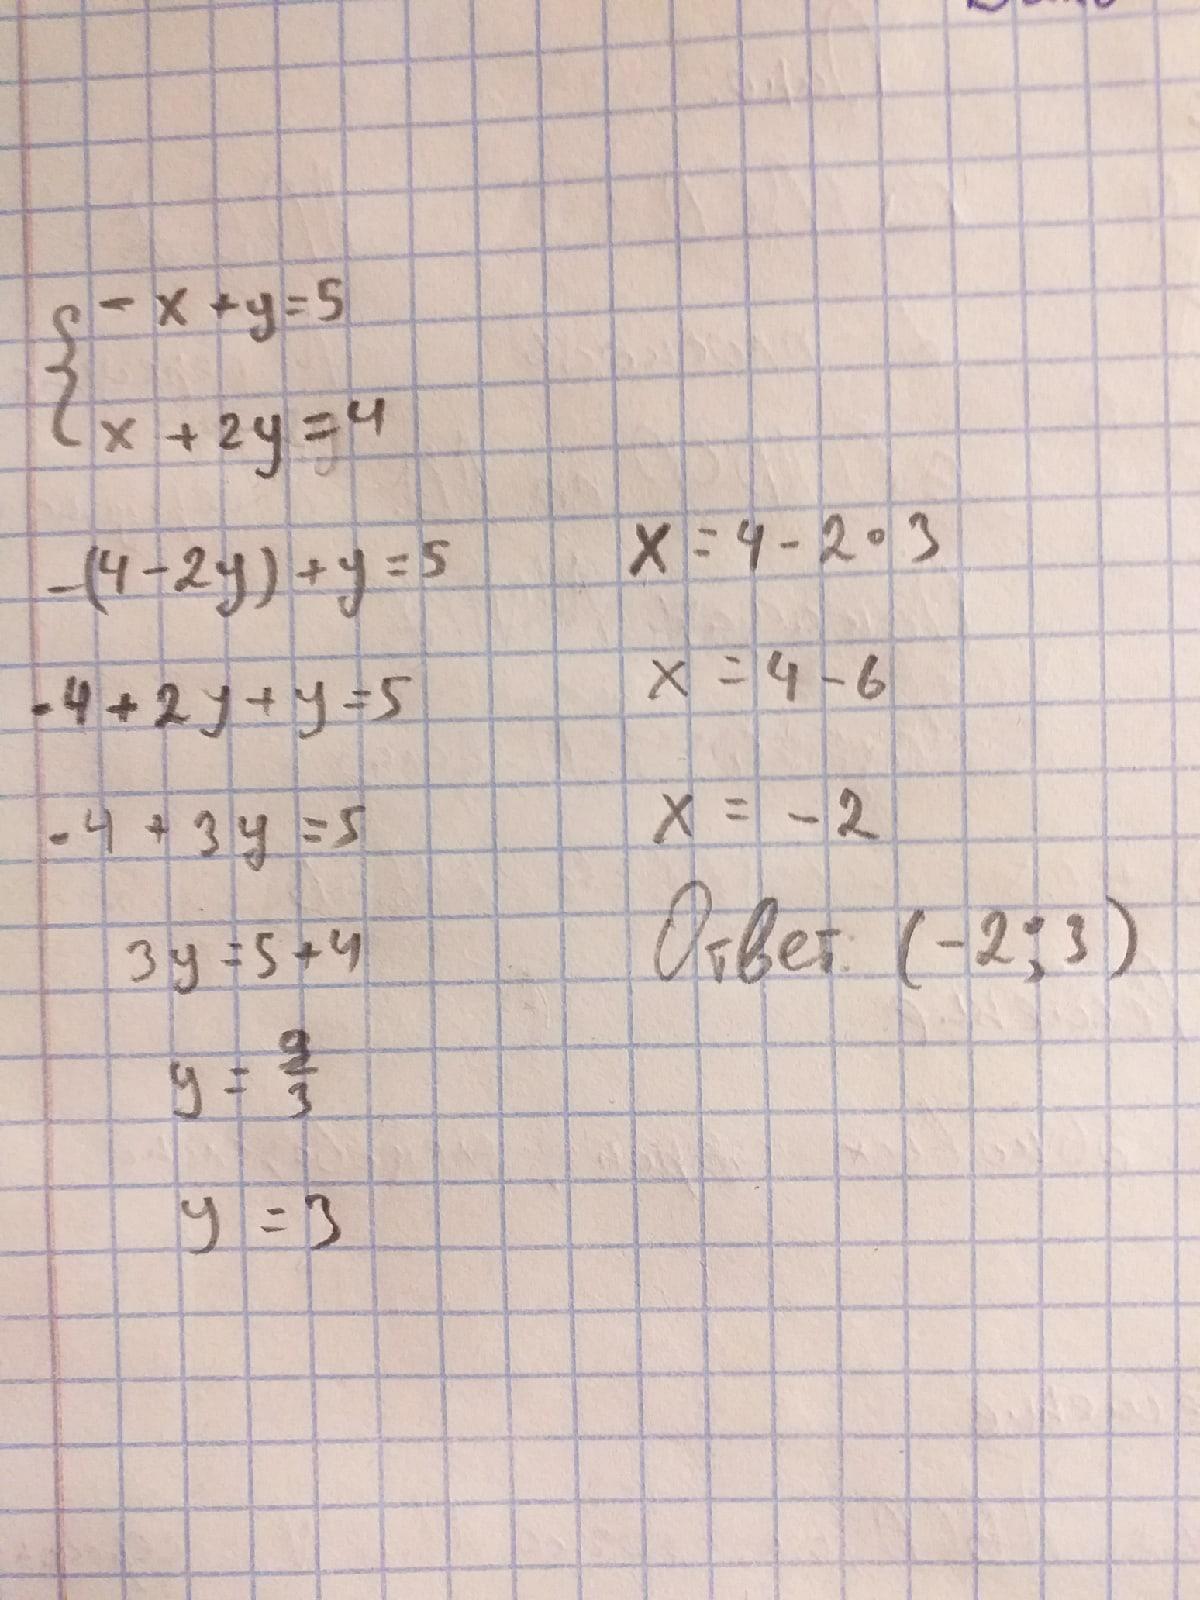 - x + y = 5
x + 2y = 4
-(4 - 2y) + y = 5
-4 + 2y + y = 5
-4 + 3y = 5
3y = 5 + 4
y = 9/3
y = 3
x = 4 - 2 • 3
x = 4 - 6
x = - 2
Ответ: (-2; 3)